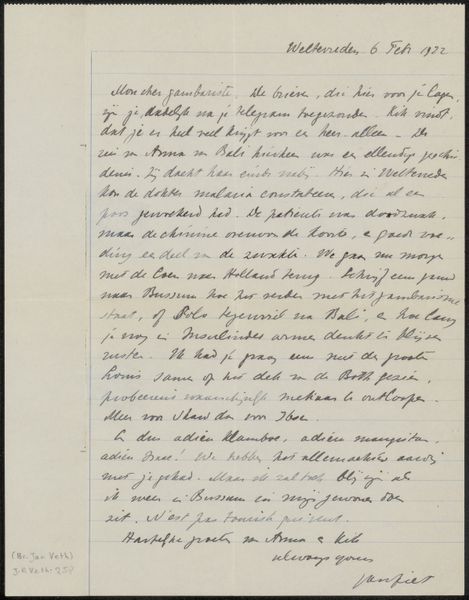 Weltevreden 6 Febr 1922
Mon cher gambariste. De brieven, die hier voor je lagen,
zijn je dadelijk na je telegram toegezonden. Kik vindt,
dat je er heel veel krijgt voor een heer alleen. De
reis van Anna na Bali hierheen was een ellendige geschie
denis. Zij dacht haar einde nabij. Hier in Weltevreden
kon de dokter malaria constateeren, die al een
poos gewoekerd had. De patiente was doodzwak,
maar de chinine overwon de koorts, en goede voe
ding een deel van de zwakte. We gaan nu morgen
met de Coen naar Holland terug. Schrijf eens gauw
naar Bussum hoe het verder met het gambarisme
staat, of Polo tegenviel na Bali, en hoe lang
je nog in Insulindes armen denkt te blijven
rusten. Ik had je graag eens met de groote
Louis samen op het dek van de Both gezien,
probeerend waarschijnlijk mekaar te ontloopen.
Meer voor Shaw dan voor Ibsen.
En dus adieu klamboe, adieu mangistan,
adieu Isaac! We hebben het allemachtig aardig
met je gehad. Maar ik zal toch blij zijn als
ik weer in Bussum in mijn gewone doen
zit. N'est pas touriste qui veut.
Hartelijke groeten van Anna en Kik
always yours
Jan Piet
(Br. Jan Veth)